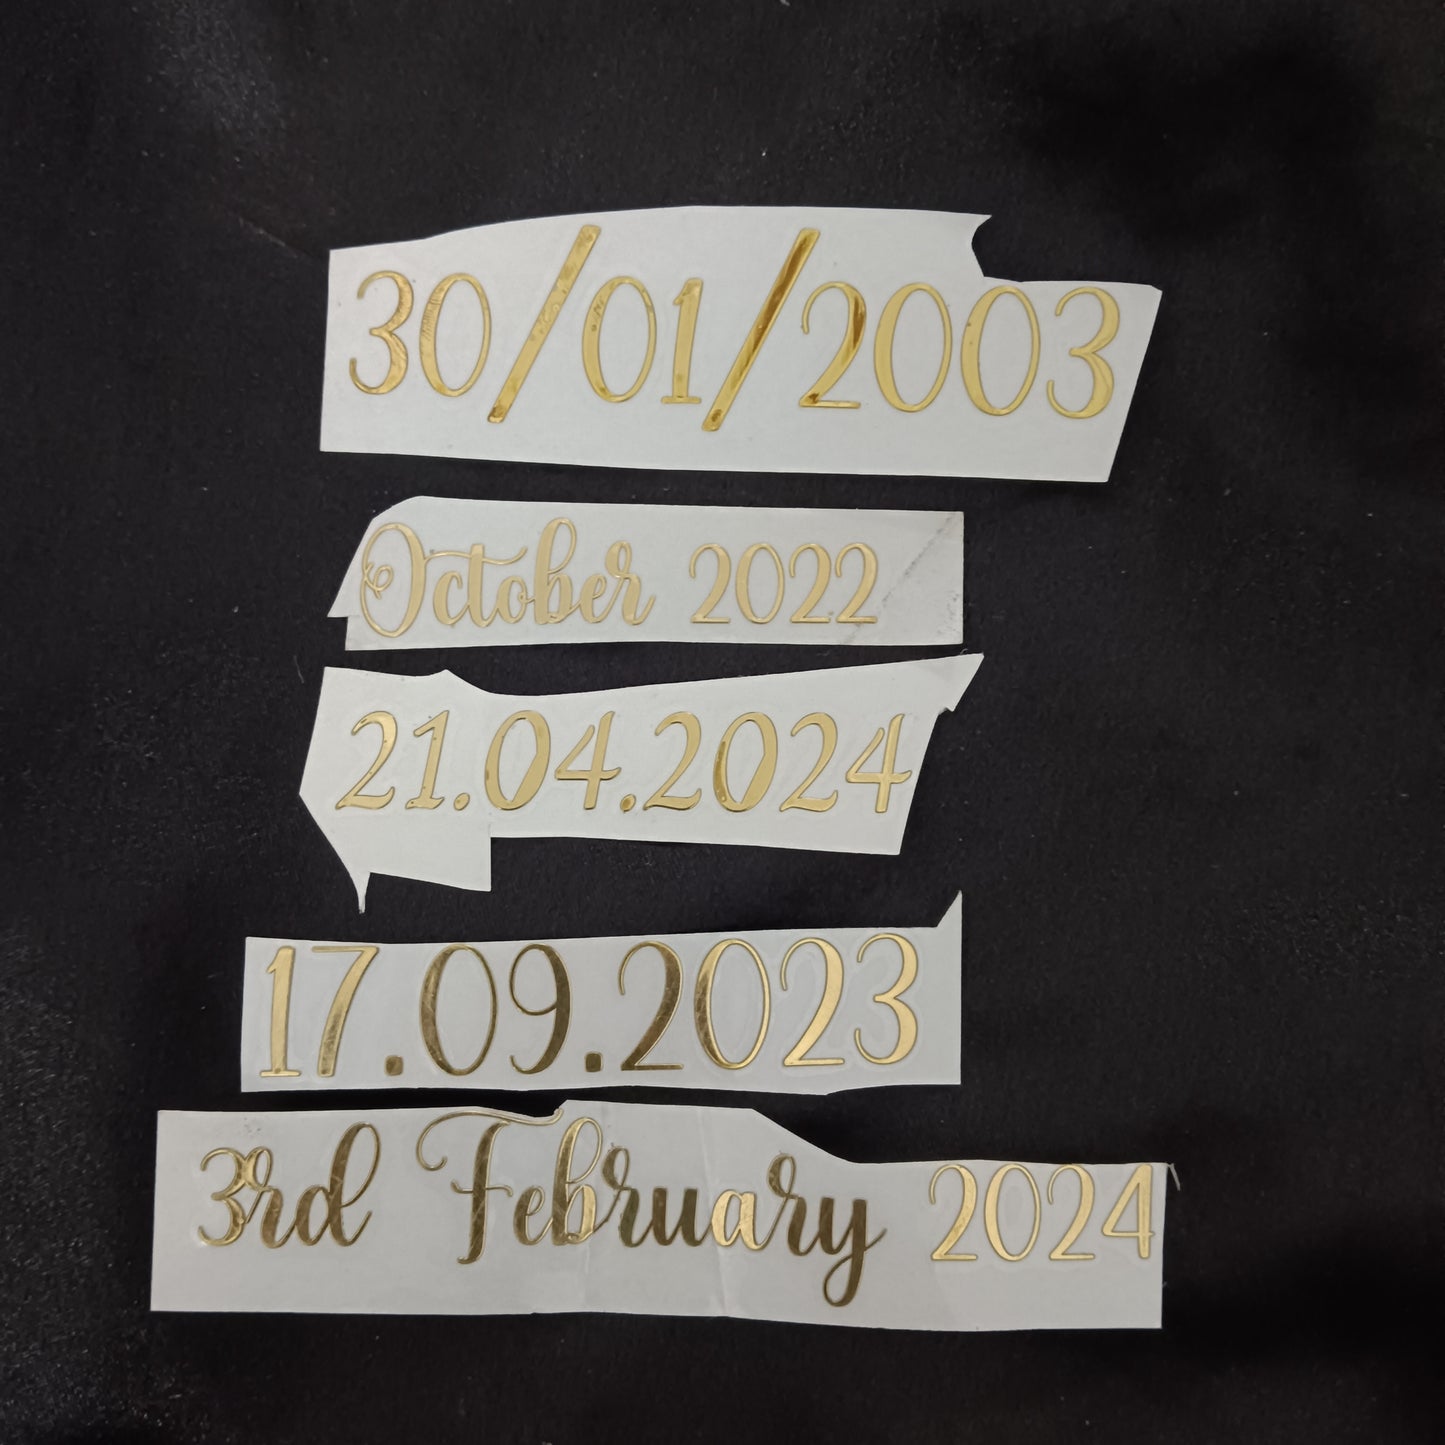 30/01/2003
October 2022
21.04.2024
17.09.2023
3rd February 2024